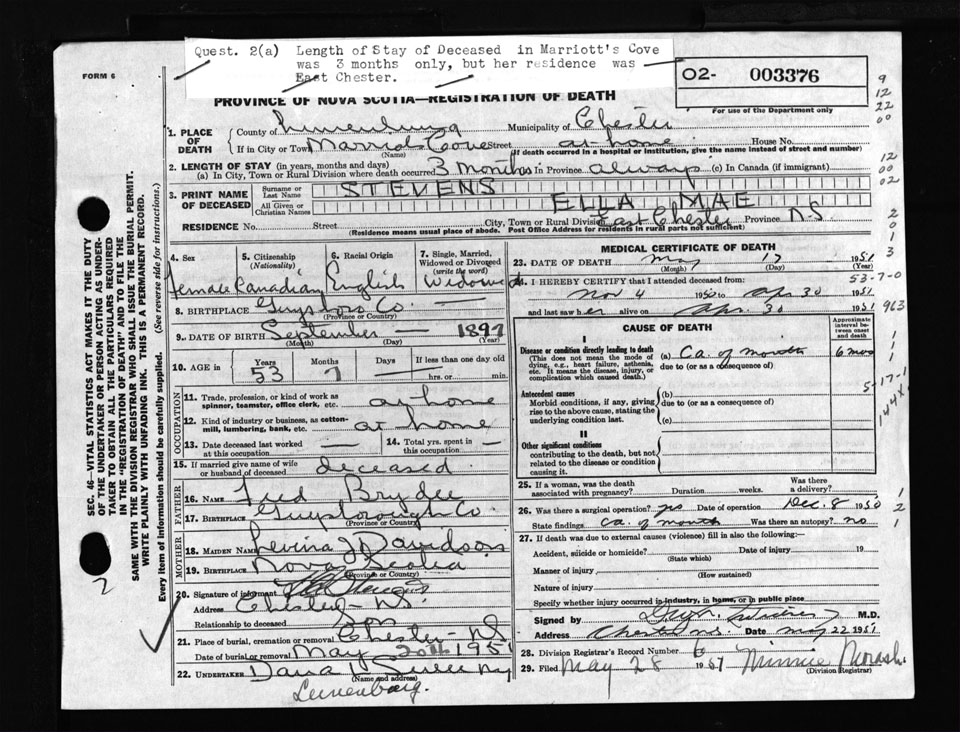 Quest. 2(a) Length of Stay of Deceased in Marriott's Cove
was 3 months only, but her residence was
East Chester.
FORM 6
O2- 003376
PROVINCE OF NOVA SCOTIA—REGISTRATION OF DEATH
For use of the Department only
1. PLACE OF DEATH
County of Lunenburg Municipality of Chester
If in City or Town Street at home House No.
(Name) (If death occurred in a hospital or institution, give the name instead of street and number)
2. LENGTH OF STAY (in years, months and days)
(a) In City, Town or Rural Division where death occurred 3 months In Province always (c) In Canada (if immigrant)
3. PRINT NAME OF DECEASED
Surname or Last Name STEVENS
All Given or Christian Names ELLA MAE
RESIDENCE No. Street City, Town or Rural Division East Chester Province N-S
(Residence means usual place of abode. Post Office Address for residents in rural parts not sufficient)
4. Sex 5. Citizenship (Nationality) 6. Racial Origin 7. Single, Married, Widowed or Divorced (write the word)
Female Canadian English Widowed
8. BIRTHPLACE Guysboro Co.
(Province or Country)
9. DATE OF BIRTH September — 1897
(Month) (Day) (Year)
10. AGE in Years Months Days If less than one day old
53 7 — hrs. or min.
OCCUPATION
11. Trade, profession, or kind of work as spinner, teamster, office clerk, etc. at home
12. Kind of industry or business, as cotton-mill, lumbering, bank, etc. at home
13. Date deceased last worked at this occupation — 14. Total yrs. spent in this occupation —
15. If married give name of wife or husband of deceased deceased
FATHER
16. NAME Fred Brydee
17. BIRTHPLACE Guysborough Co.
(Province or Country)
MOTHER
18. MAIDEN NAME Levina J Davidson
19. BIRTHPLACE Nova Scotia
(Province or Country)
20. Signature of informant
Address Chester - NS.
Relationship to deceased Son
21. Place of burial, cremation or removal Chester - NS
Date of burial or removal May 20th 1951
22. UNDERTAKER Dana L Sweeny
(Name and address)
Lunenburg.
MEDICAL CERTIFICATE OF DEATH
23. DATE OF DEATH May 17 1951
(Month) (Day) (Year)
24. I HEREBY CERTIFY that I attended deceased from: 53-7-0
Nov 4 1950 to Apr 30 1951
and last saw her alive on Apr. 30 1951
963
CAUSE OF DEATH
Approximate interval between onset and death
I
Disease or condition directly leading to death
(This does not mean the mode of dying, e.g., heart failure, asthenia, etc. It means the disease, injury, or complication which caused death.)
(a) Ca. of mouth 6 mos
due to (or as a consequence of)
Antecedent causes
Morbid conditions, if any, giving rise to the above cause, stating the underlying condition last.
(b)
due to (or as a consequence of)
(c)
5-17-1
144X
II
Other significant conditions
contributing to the death, but not related to the disease or condition causing it.
25. If a woman, was the death associated with pregnancy? Duration weeks. Was there a delivery?
26. Was there a surgical operation? yes Date of operation Dec. 8 1950
State findings ca. of mouth Was there an autopsy? no
27. If death was due to external causes (violence) fill in also the following:—
Accident, suicide or homicide? Date of injury 19
(State which)
Manner of injury
(How sustained)
Nature of injury
Specify whether injury occurred in industry, in home, or in public place
Signed by M.D.
Address Chester NS. Date May 22 1951
28. Division Registrar's Record Number 6
29. Filed May 28 1951 Minnie
(Division Registrar)
SEC. 46—VITAL STATISTICS ACT MAKES IT THE DUTY
OF THE UNDERTAKER OR PERSON ACTING AS UNDER-
TAKER TO OBTAIN ALL THE PARTICULARS REQUIRED
IN THE "REGISTRATION OF DEATH" AND TO FILE THE
SAME WITH THE DIVISION REGISTRAR WHO SHALL ISSUE THE BURIAL PERMIT.
WRITE PLAINLY WITH UNFADING INK. THIS IS A PERMANENT RECORD.
Every item of information should be carefully supplied. (See reverse side for instructions.)